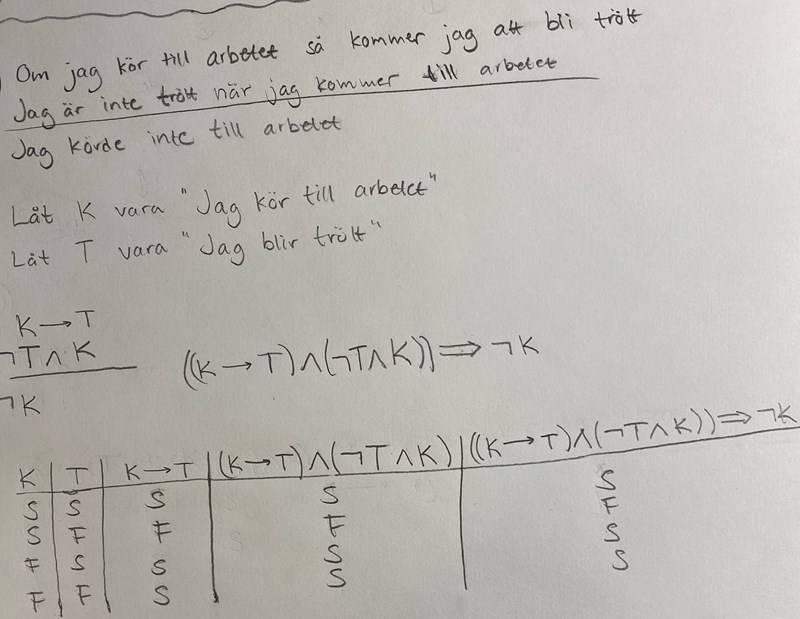 Om jag kör till arbetet så kommer jag att bli trött
Jag är inte trött när jag kommer till arbetet
Jag körde inte till arbetet
Låt K vara "Jag kör till arbetet"
Låt T vara "Jag blir trött"
K→T
¬T∧K
¬K
((K→T)∧(¬T∧K))⇒¬K
K | T | K→T | (K→T)∧(¬T∧K) | ((K→T)∧(¬T∧K))⇒¬K
S | S | S | S | S
S | F | F | F | F
F | S | S | S | S
F | F | S | S | S